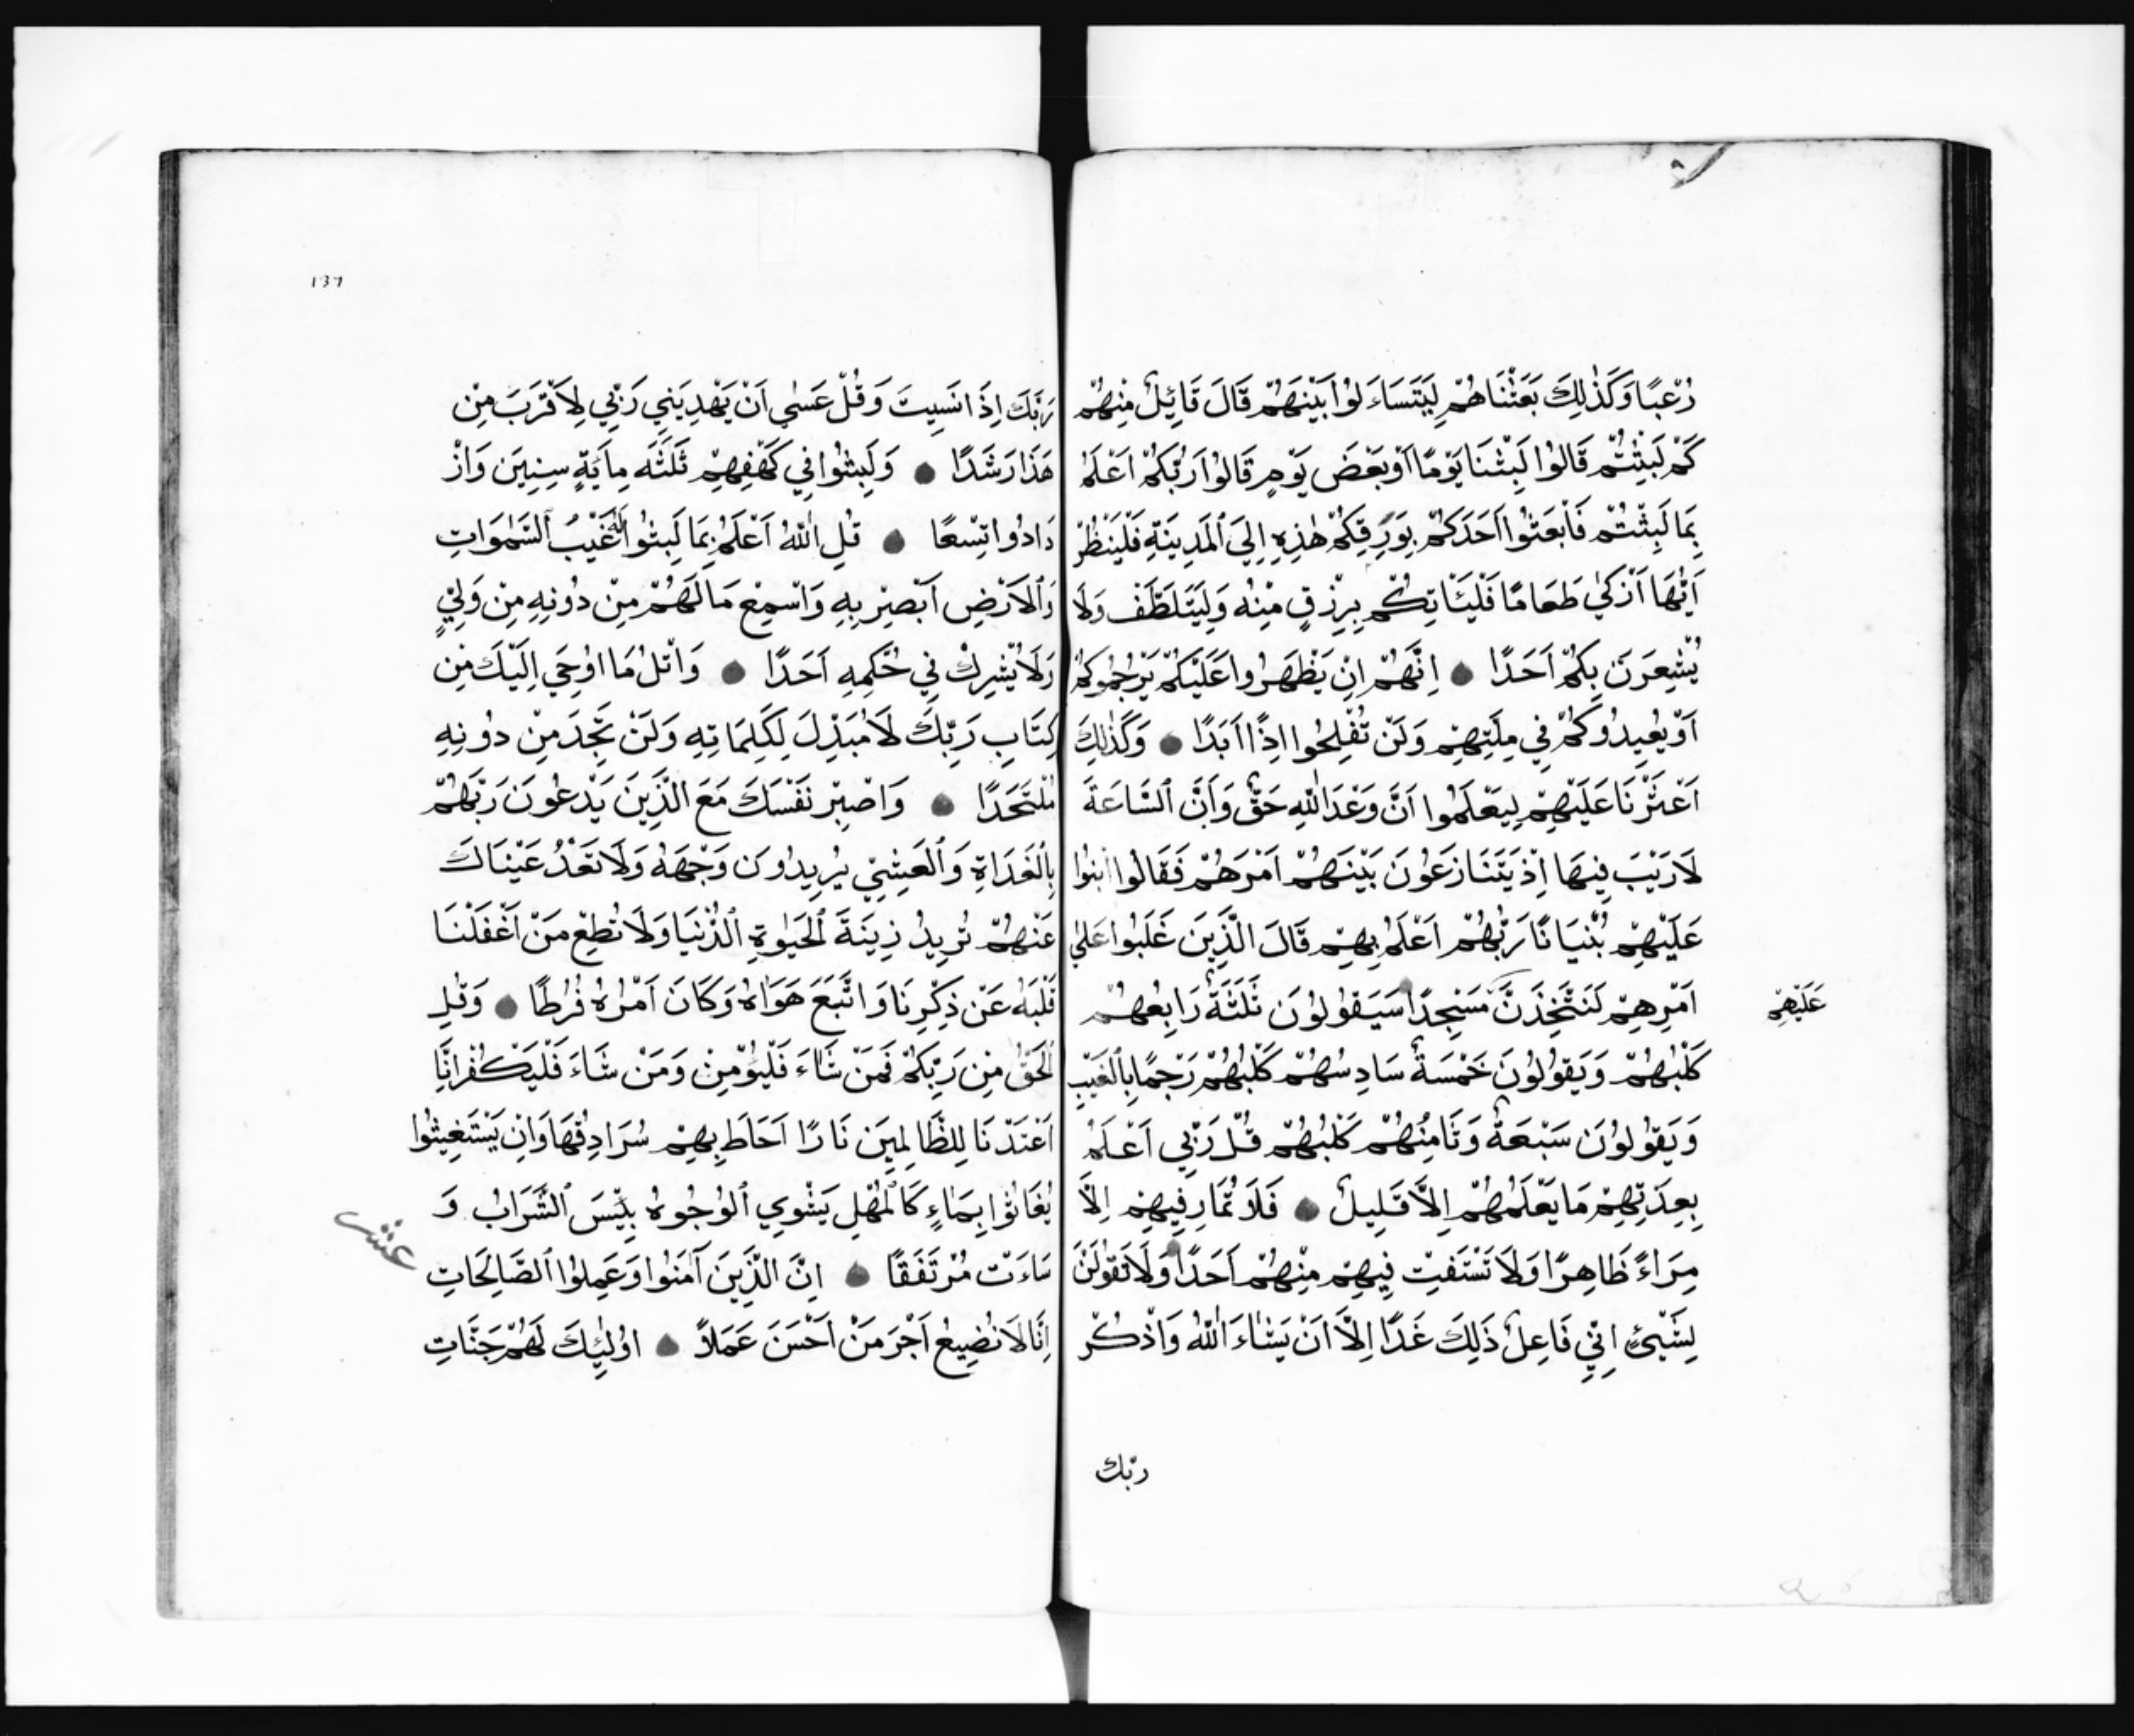 رُعْبًا وَكَذٰلِكَ بَعَثْنَاهُمْ لِيَتَسَاءَلُوا بَيْنَهُمْ قَالَ قَائِلٌ مِنْهُمْ
كَمْ لَبِثْتُمْ قَالُوا لَبِثْنَا يَوْمًا اَوْ بَعْضَ يَوْمٍ قَالُوا رَبُّكُمْ اَعْلَمُ
بِمَا لَبِثْتُمْ فَابْعَثُوا اَحَدَكُمْ بِوَرِقِكُمْ هٰذِهِ اِلَى الْمَدِينَةِ فَلْيَنْظُرْ
اَيُّهَا اَزْكٰى طَعَامًا فَلْيَأْتِكُمْ بِرِزْقٍ مِنْهُ وَلْيَتَلَطَّفْ وَلَا
يُشْعِرَنَّ بِكُمْ اَحَدًا اِنَّهُمْ اِنْ يَظْهَرُوا عَلَيْكُمْ يَرْجُمُوكُمْ
اَوْ يُعِيدُوكُمْ فِي مِلَّتِهِمْ وَلَنْ تُفْلِحُوا اِذًا اَبَدًا وَكَذٰلِكَ
اَعْثَرْنَا عَلَيْهِمْ لِيَعْلَمُوا اَنَّ وَعْدَ اللّٰهِ حَقٌّ وَاَنَّ السَّاعَةَ
لَا رَيْبَ فِيهَا اِذْ يَتَنَازَعُونَ بَيْنَهُمْ اَمْرَهُمْ فَقَالُوا ابْنُوا
عَلَيْهِمْ بُنْيَانًا رَبُّهُمْ اَعْلَمُ بِهِمْ قَالَ الَّذِينَ غَلَبُوا عَلٰى
اَمْرِهِمْ لَنَتَّخِذَنَّ مَسْجِدًا سَيَقُولُونَ ثَلٰثَةٌ رَابِعُهُمْ
عَلَيْهِمْ
كَلْبُهُمْ وَيَقُولُونَ خَمْسَةٌ سَادِسُهُمْ كَلْبُهُمْ رَجْمًا بِالْغَيْبِ
وَيَقُولُونَ سَبْعَةٌ وَثَامِنُهُمْ كَلْبُهُمْ قُلْ رَبِّي اَعْلَمُ
بِعِدَّتِهِمْ مَا يَعْلَمُهُمْ اِلَّا قَلِيلٌ فَلَا تُمَارِ فِيهِمْ اِلَّا
مِرَاءً ظَاهِرًا وَلَا تَسْتَفْتِ فِيهِمْ مِنْهُمْ اَحَدًا وَلَا تَقُولَنَّ
لِشَيْئٍ اِنِّي فَاعِلٌ ذَلِكَ غَدًا اِلَّا اَنْ يَشَاءَ اللّٰهُ وَاذْكُرْ
ربّك
١٣٦
رَبَّكَ اِذَا نَسِيتَ وَقُلْ عَسٰى اَنْ يَهْدِيَنِي رَبِّي لِاَقْرَبَ مِنْ
هَذَا رَشَدًا وَلَبِثُوا فِي كَهْفِهِمْ ثَلٰثَ مِايَةٍ سِنِينَ وَازْ
دَادُوا تِسْعًا قُلِ اللّٰهُ اَعْلَمُ بِمَا لَبِثُوا لَهُ غَيْبُ السَّمٰوَاتِ
وَالْاَرْضِ اَبْصِرْ بِهِ وَاَسْمِعْ مَا لَهُمْ مِنْ دُونِهِ مِنْ وَلِيٍّ
وَلَا يُشْرِكُ فِي حُكْمِهِ اَحَدًا وَاتْلُ مَا اُوحِيَ اِلَيْكَ مِنْ
كِتَابِ رَبِّكَ لَا مُبَدِّلَ لِكَلِمَاتِهِ وَلَنْ تَجِدَ مِنْ دُونِهِ
مُلْتَحَدًا وَاصْبِرْ نَفْسَكَ مَعَ الَّذِينَ يَدْعُونَ رَبَّهُمْ
بِالْغَدَاةِ وَالْعَشِيِّ يُرِيدُونَ وَجْهَهُ وَلَا تَعْدُ عَيْنَاكَ
عَنْهُمْ تُرِيدُ زِينَةَ الْحَيٰوةِ الدُّنْيَا وَلَا تُطِعْ مَنْ اَغْفَلْنَا
قَلْبَهُ عَنْ ذِكْرِنَا وَاتَّبَعَ هَوَاهُ وَكَانَ اَمْرُهُ فُرُطًا وَقُلِ
الْحَقُّ مِنْ رَبِّكُمْ فَمَنْ شَاءَ فَلْيُؤْمِنْ وَمَنْ شَاءَ فَلْيَكْفُرْ اِنَّا
اَعْتَدْنَا لِلظَّالِمِينَ نَارًا اَحَاطَ بِهِمْ سُرَادِقُهَا وَاِنْ يَسْتَغِيثُوا
يُغَاثُوا بِمَاءٍ كَالْمُهْلِ يَشْوِي الْوُجُوهُ بِئْسَ الشَّرَابُ وَ
عشر
سَاءَتْ مُرْتَفَقًا اِنَّ الَّذِينَ آمَنُوا وَعَمِلُوا الصَّالِحَاتِ
اِنَّا لَا نُضِيعُ اَجْرَ مَنْ اَحْسَنَ عَمَلًا اُولٰئِكَ لَهُمْ جَنَّاتِ